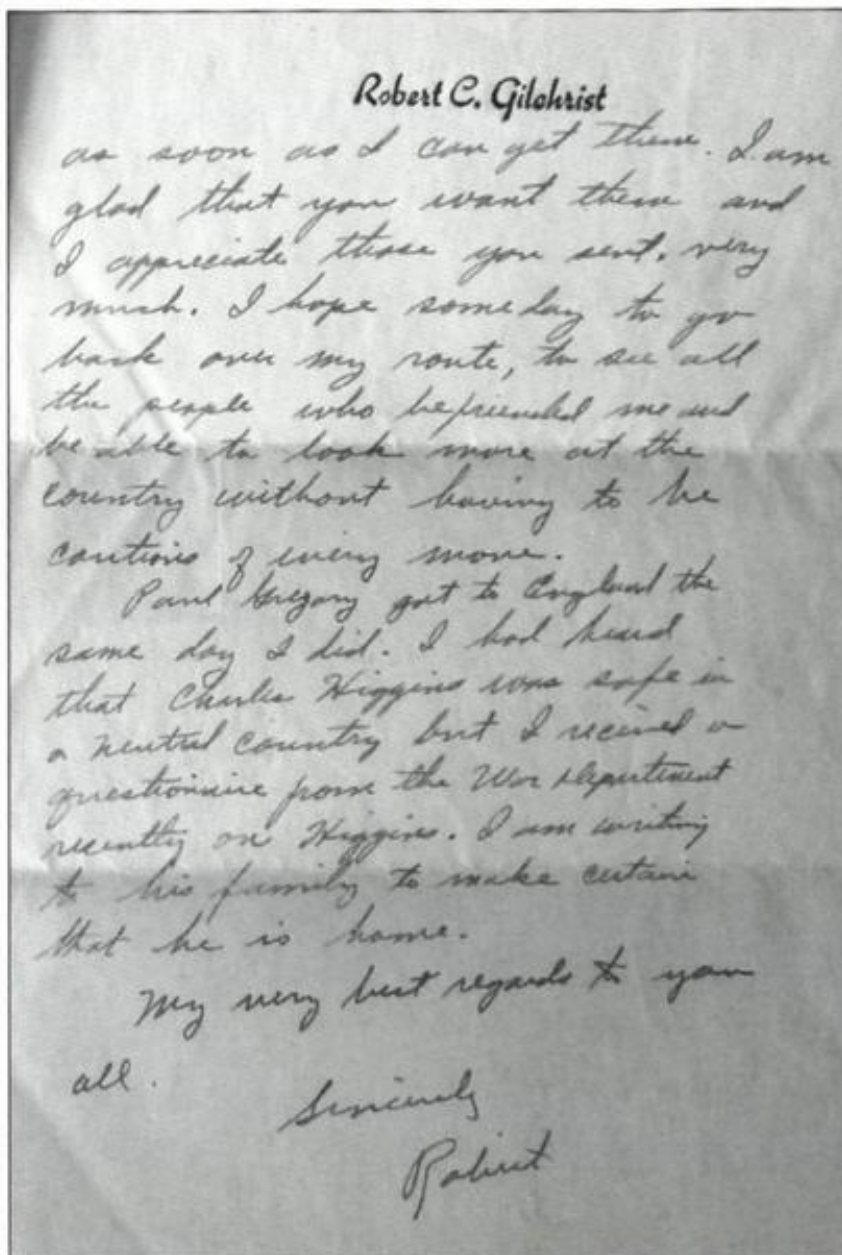 Robert C. Gilchrist
as soon as I can get them. I am
glad that you want them and
I appreciate those you sent, very
much. I hope someday to go
back over my route, to see all
the people who befriended me and
be able to look more at the
country without having to be
cautious of every move.
Paul Gregory got to England the
same day I did. I had heard
that Charles Higgins was safe in
a neutral country but I received a
questionnaire from the War Department
recently on Higgins. I am writing
to his family to make certain
that he is home.
My very best regards to you
all.
Sincerely
Robert